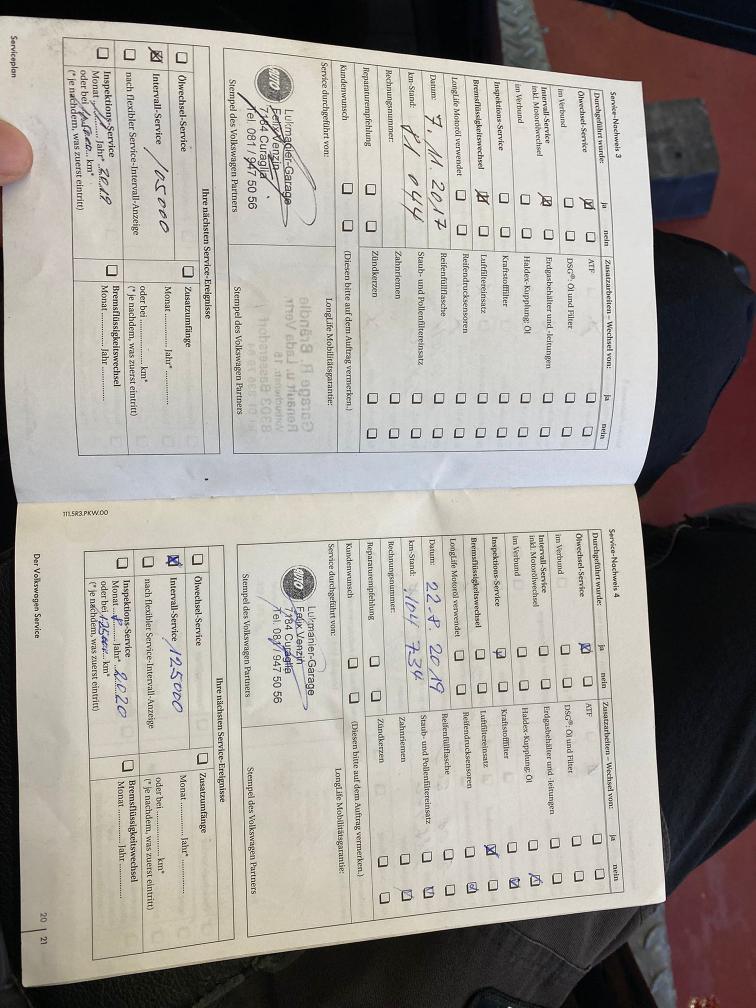 Service-Nachweis 3
Durchgeführt wurde: ja nein
Ölwechsel-Service
im Verbund
Intervall-Service
inkl. Motorölwechsel
im Verbund
Inspektions-Service
Bremsflüssigkeitswechsel
LongLife Motoröl verwendet
Datum: 7. 11. 2017
km-Stand: 81 044
Rechnungsnummer:
Reparaturempfehlung
Kundenwunsch
Service durchgeführt von:
Lukmanier-Garage
Felix Venzin
7184 Curaglia
Tel. 081 / 947 50 56
Stempel des Volkswagen Partners
Zusatzarbeiten – Wechsel von: ja nein
ATF
DSG®: Öl und Filter
Erdgasbehälter und -leitungen
Haldex-Kupplung: Öl
Kraftstofffilter
Luftfiltereinsatz
Reifendrucksensoren
Reifenfüllflasche
Staub- und Pollenfiltereinsatz
Zahnriemen
Zündkerzen
(Diesen bitte auf dem Auftrag vermerken.)
LongLife Mobilitätsgarantie:
Stempel des Volkswagen Partners
Ihre nächsten Service-Ereignisse
Ölwechsel-Service
Intervall-Service 105000
nach flexibler Service-Intervall-Anzeige
Inspektions-Service
Monat Jahr* 2019
oder bei km*
(* je nachdem, was zuerst eintritt)
Zusatzumfänge
Monat Jahr*
oder bei km*
(* je nachdem, was zuerst eintritt)
Bremsflüssigkeitswechsel
Monat Jahr
Serviceplan
111.5R3.PKW.00
Service-Nachweis 4
Durchgeführt wurde: ja nein
Ölwechsel-Service
im Verbund
Intervall-Service
inkl. Motorölwechsel
im Verbund
Inspektions-Service
Bremsflüssigkeitswechsel
LongLife Motoröl verwendet
Datum: 22-8. 2019
km-Stand: 104 734
Rechnungsnummer:
Reparaturempfehlung
Kundenwunsch
Service durchgeführt von:
Lukmanier-Garage
Felix Venzin
7184 Curaglia
Tel. 081 / 947 50 56
Stempel des Volkswagen Partners
Zusatzarbeiten – Wechsel von: ja nein
ATF
DSG®: Öl und Filter
Erdgasbehälter und -leitungen
Haldex-Kupplung: Öl
Kraftstofffilter
Luftfiltereinsatz
Reifendrucksensoren
Reifenfüllflasche
Staub- und Pollenfiltereinsatz
Zahnriemen
Zündkerzen
(Diesen bitte auf dem Auftrag vermerken.)
LongLife Mobilitätsgarantie:
Stempel des Volkswagen Partners
Ihre nächsten Service-Ereignisse
Ölwechsel-Service
Intervall-Service 125000
nach flexibler Service-Intervall-Anzeige
Inspektions-Service
Monat 8 Jahr* 2020
oder bei 125000 km*
(* je nachdem, was zuerst eintritt)
Zusatzumfänge
Monat Jahr*
oder bei km*
(* je nachdem, was zuerst eintritt)
Bremsflüssigkeitswechsel
Monat Jahr
Der Volkswagen Service 20 | 21